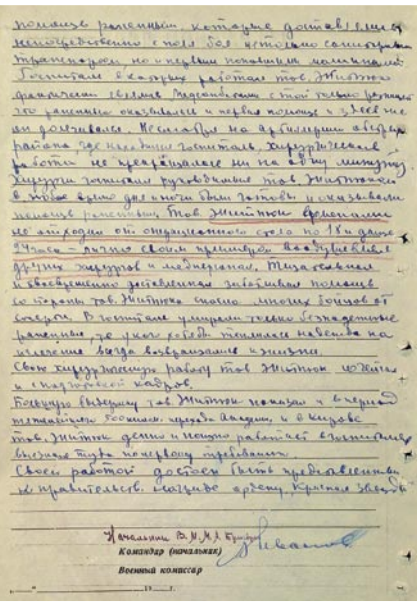 помощь раненным, которые доставлялись
непосредственно с поля боя не только санитарным
транспортом, но и первыми попавшими машинами.
Госпитали в которых работал тов. Житнюк
фактически явились Медсанбатами с той только разницей
что раненным оказывалась и первая помощь и здесь же
он долечивался. Несмотря на артиллерии обстрел
района где находился госпиталь, хирургическая
работа не прекращалась ни на одну минуту.
Хирурги госпиталя руководимые тов. Житнюком
в любое время дня и ночи были готовы и оказывали
помощь раненным. Тов. Житнюк временами
не отходил от операционного стола по 18 и даже
24 часа – лично своим примером воодушевляя
других хирургов и медперсонал. Тщательная
и своевременно доставленная заботливая помощь
со стороны тов. Житнюка спасла многих бойцов от
смерти. В госпитале умирали только безнадежные
раненные, те у кого хотя бы теплилась надежда на
излечение всегда возвращались к жизни.
Свою хирургическую работу тов. Житнюк сочетал
и с подготовкой кадров.
Большую выдержку тов. Житнюк показал и в период
перехода Академии, и в Кирове
тов. Житнюк денно и нощно работает в госпиталях
выезжая туда по первому требованию.
Своей работой достоен быть представленным
к правительств. награде ордену "Красная Звезда"
Начальник В.М.М.А.
Командир (начальник)
Военный комиссар
" " 19 г.